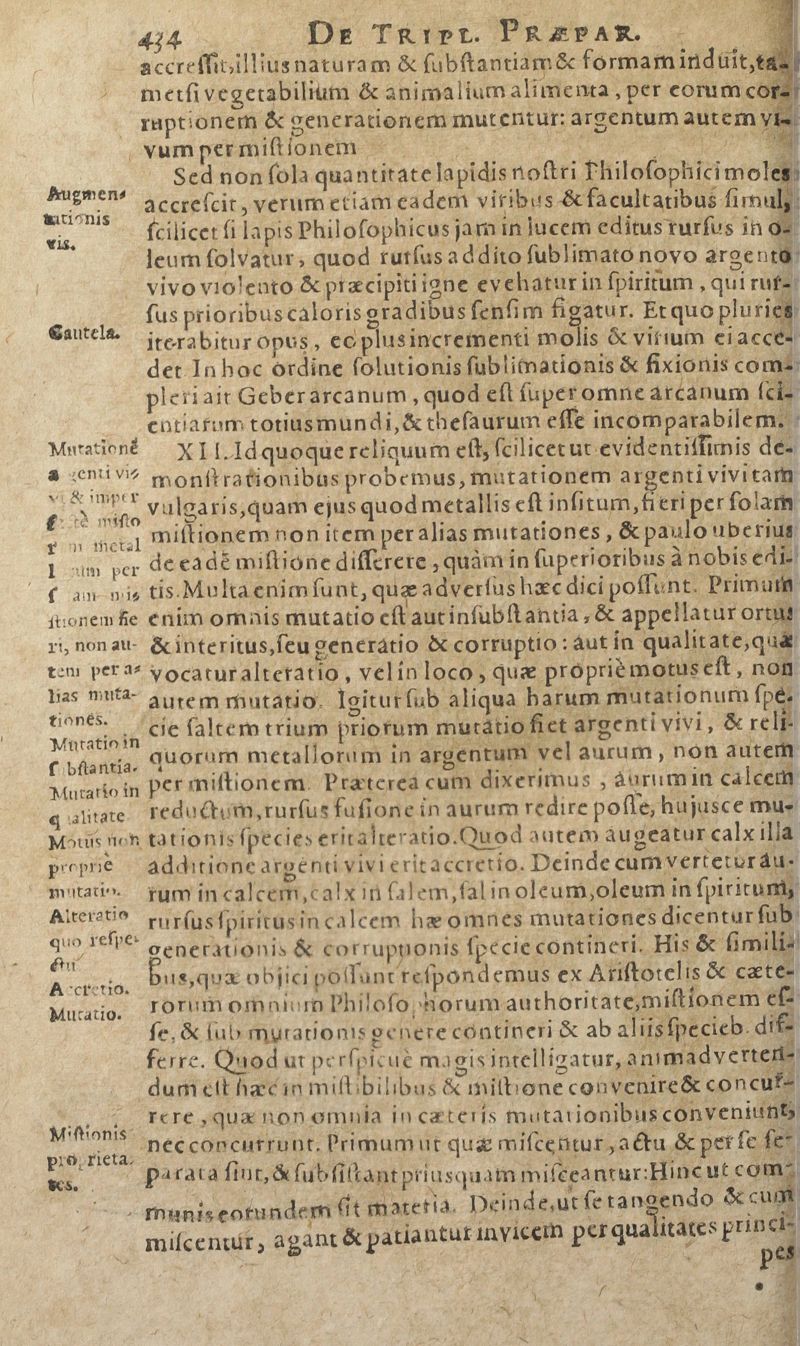 434 DE TRIPL. PRÆPAR.
accressit, illius naturam & substantiam & formam induit, ta-
metsi vegetabilium & animalium alimenta, per eorum cor-
ruptionem & generationem mutentur: argentum autem vi-
vum per mistionem
Sed non sola quantitate lapidis nostri Philosophici moles
Augmen-
tationis
vis.
accrescit, verum etiam eadem viribus & facultatibus simul,
scilicet si lapis Philosophicus jam in lucem editus rursus in o-
leum solvatur, quod rursus addito sublimato novo argento
vivo violento & præcipiti igne evehatur in spiritum, qui rur-
sus prioribus caloris gradibus sensim figatur. Et quo pluries
Cautela.
iterabitur opus, eo plus incrementi molis & virium ei acce-
det In hoc ordine solutionis sublimationis & fixionis com-
pleri ait Geber arcanum, quod est super omne arcanum sci-
entiarum totius mundi, & thesaurum esse incomparabilem.
Mutationē
XII. Id quoque reliquum est, scilicet ut evidentissimis de-
monstrationibus probemus, mutationem argenti vivi tam
vulgaris, quam ejus quod metallis est insitum, fieri per solam
mistionem non item per alias mutationes, & paulo uberius
de eadē mistione disserere, quàm in superioribus à nobis edi-
tis. Multa enim sunt, quæ adversus hæc dici possunt. Primum
stionem fie
ri, non au-
tem per a-
lias muta-
tiones.
enim omnis mutatio est aut in substantia, & appellatur ortus
& interitus, seu generatio & corruptio: aut in qualitate, quæ
vocatur alteratio, vel in loco, quæ propriè motus est, non
autem mutatio. Igitur sub aliqua harum mutationum spe-
cie saltem trium priorum mutatio fiet argenti vivi, & reli-
Mutatio in
substantia.
quorum metallorum in argentum vel aurum, non autem
Mutatio in
qualitate
per mistionem. Præterea cum dixerimus, aurum in calcem
reductum, rursus fusione in aurum redire posse, hujusce mu-
Motus non
proprie
mutatio.
tationis species erit alteratio. Quod autem augeatur calx illa
additione argenti vivi erit accretio. Deinde cum vertetur au-
rum in calcem, calx in salem, sal in oleum, oleum in spiritum,
Alteratio
quo respe-
ctu
rursus spiritus in calcem hæ omnes mutationes dicentur sub
generationis & corruptionis specie contineri. His & simili-
bus, quæ objici possunt respondemus ex Aristotelis & cæte-
Accretio.
Mutatio.
rorum omnium Philosophorum authoritate, mistionem es-
se, & sub mutationis genere contineri & ab aliis specieb. dif-
ferre. Quod ut perspicuè magis intelligatur, animadverten-
dum est hæc in mistibilibus & mistione convenire & concur-
rere, quæ non omnia in cæteris mutationibus conveniunt,
Mistionis
proprieta-
tes.
nec concurrunt. Primum ut quæ miscentur, actu & per se se-
parata sint, & subsistant priusquam misceantur: Hinc ut com-
munis eorundem sit materia. Deinde, ut se tangendo & cum
miscentur, agant & patiantur invicem per qualitates princi-
pes